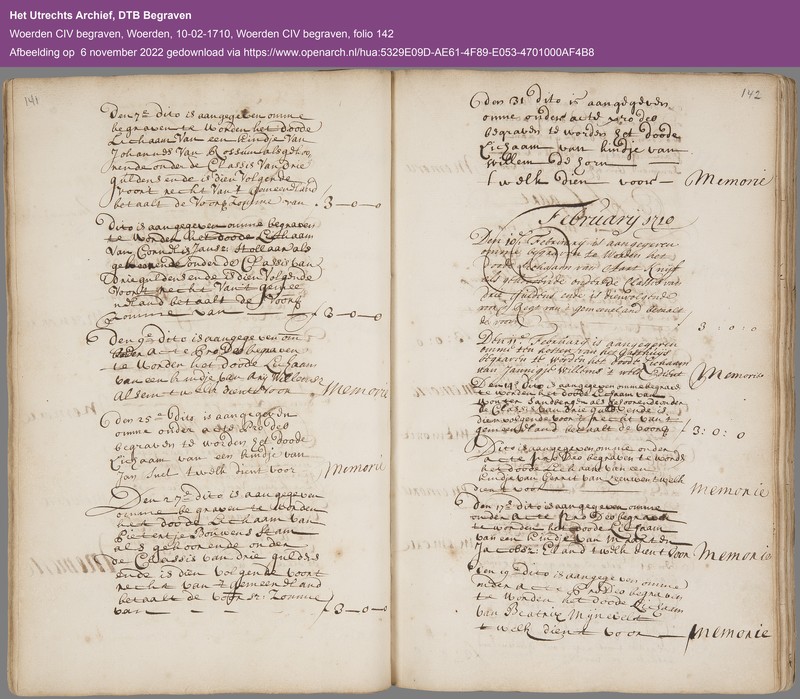 Het Utrechts Archief, DTB Begraven
Woerden CIV begraven, Woerden, 10-02-1710, Woerden CIV begraven, folio 142
Afbeelding op 6 november 2022 gedownload via https://www.openarch.nl/hua:5329E09D-AE61-4F89-E053-4701000AF4B8
141
Den 7e dito is aangegeven omme
begraven te worden het doode
Lichaam van een kindje van
Johannes van Rossum als gehoo
rende onder de Classis van drie
guldens ende is dien volgende
voort recht van 't gemeenland
betaalt de voorsz somme van 3-0-0
Dito is aangegeven omme begraven
te worden het doode Lichaam
van Cornelis Janse als
gehoorende onder de Classis van
drie guldens ende is dien volgende
voort recht van t gemee
neland betaalt de voorsz
somme van 3-0-0
Den 9e dito is aangegeven om
onder acte Pro Deo begraven
te worden het doode Lichaam
van een kindje van Ary Willemse
Alsem twelk dient voor Memorie
den 25e dito is aangegeven
omme onder acte pro deo
begraven te worden het doode
Lichaam van een kindje van
Jan twelk dient voor Memorie
Den 27e dito is aangegeven
omme begraven te worden
het doode Lichaam van
Pietertje Bouwens
als gehoorende onder
de Classis van drie guldens
ende is dien volgende voort
recht van 't gemeenland
betaalt de voorsz somme
van 3-0-0
142
den 31 dito is aangegeven
omme onder acte pro deo
begraven te worden het doode
Lichaam van kindje van
Willem de horn
twelk dien voor Memorie
Februarij 1710
Den 10e Februarij is aangegeven
omme begraven te worden het
doode Lichaam van
als gehoorende onder de Classis van
drie guldens ende is dienvolgende
voor't regt van 't gemeneland betaalt
de voorsz 3:0:0
Den 11e Februarij is aangegeven
omme ten kosten van het Gasthuys
begraven te worden het doode Lichaam
van Jannigje Willems 't welk dient Memorie
Den 14e dito is aangegeven omme begrave
te worden het doode Lichaam van
als gehoorende onder
de Classis van drie guldens ende is
dienvolgende voor't recht van t
gemeenland betaalt de voorsz 3:0:0
Dito is aangegeven omme onder
acte Pro Deo begraven te worde
het doode Lichaam van een
kindje van Gerrit van Leeuwen twelk
dient voor Memorie
Den 17e dito is aangegeven omme
onder acte Pro Deo begraven
te worden het doode Lichaam
van een kindje van Maarten
Jacobsz Eland twelk dient voor Memorie
Den 19e dito is aangegeven omme
onder acte Pro Deo begraven
te worden het doode Lichaam
van Beatrix Mijn
twelk dient voor Memorie